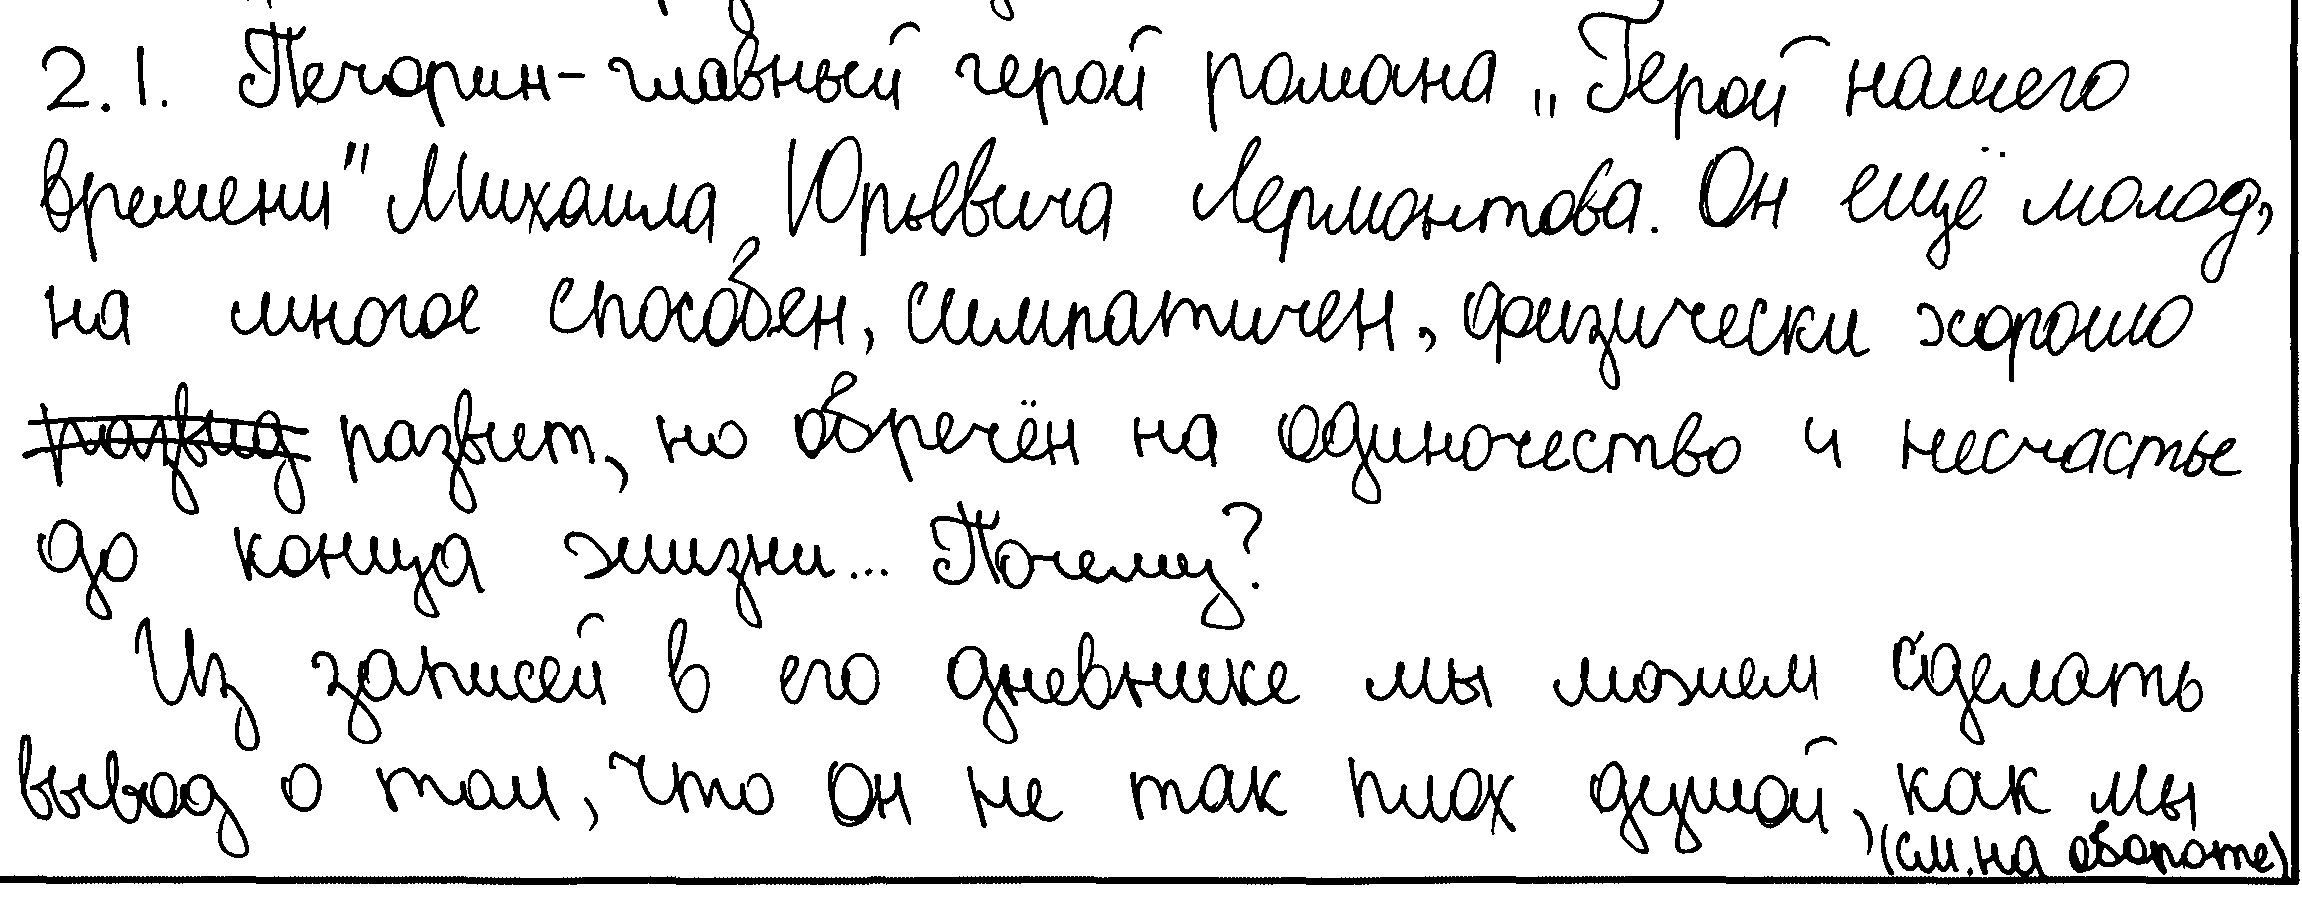 2.1. Печорин - главный герой романа „Герой нашего
времени" Михаила Юрьевича Лермонтова. Он ещё молод,
на многое способен, симпатичен, физически хорошо
развит, но обречён на одиночество и несчастье
до конца жизни... Почему?
Из записей в его дневнике мы можем сделать
вывод о том, что он не так плох душой, как мы
(см. на обороте)